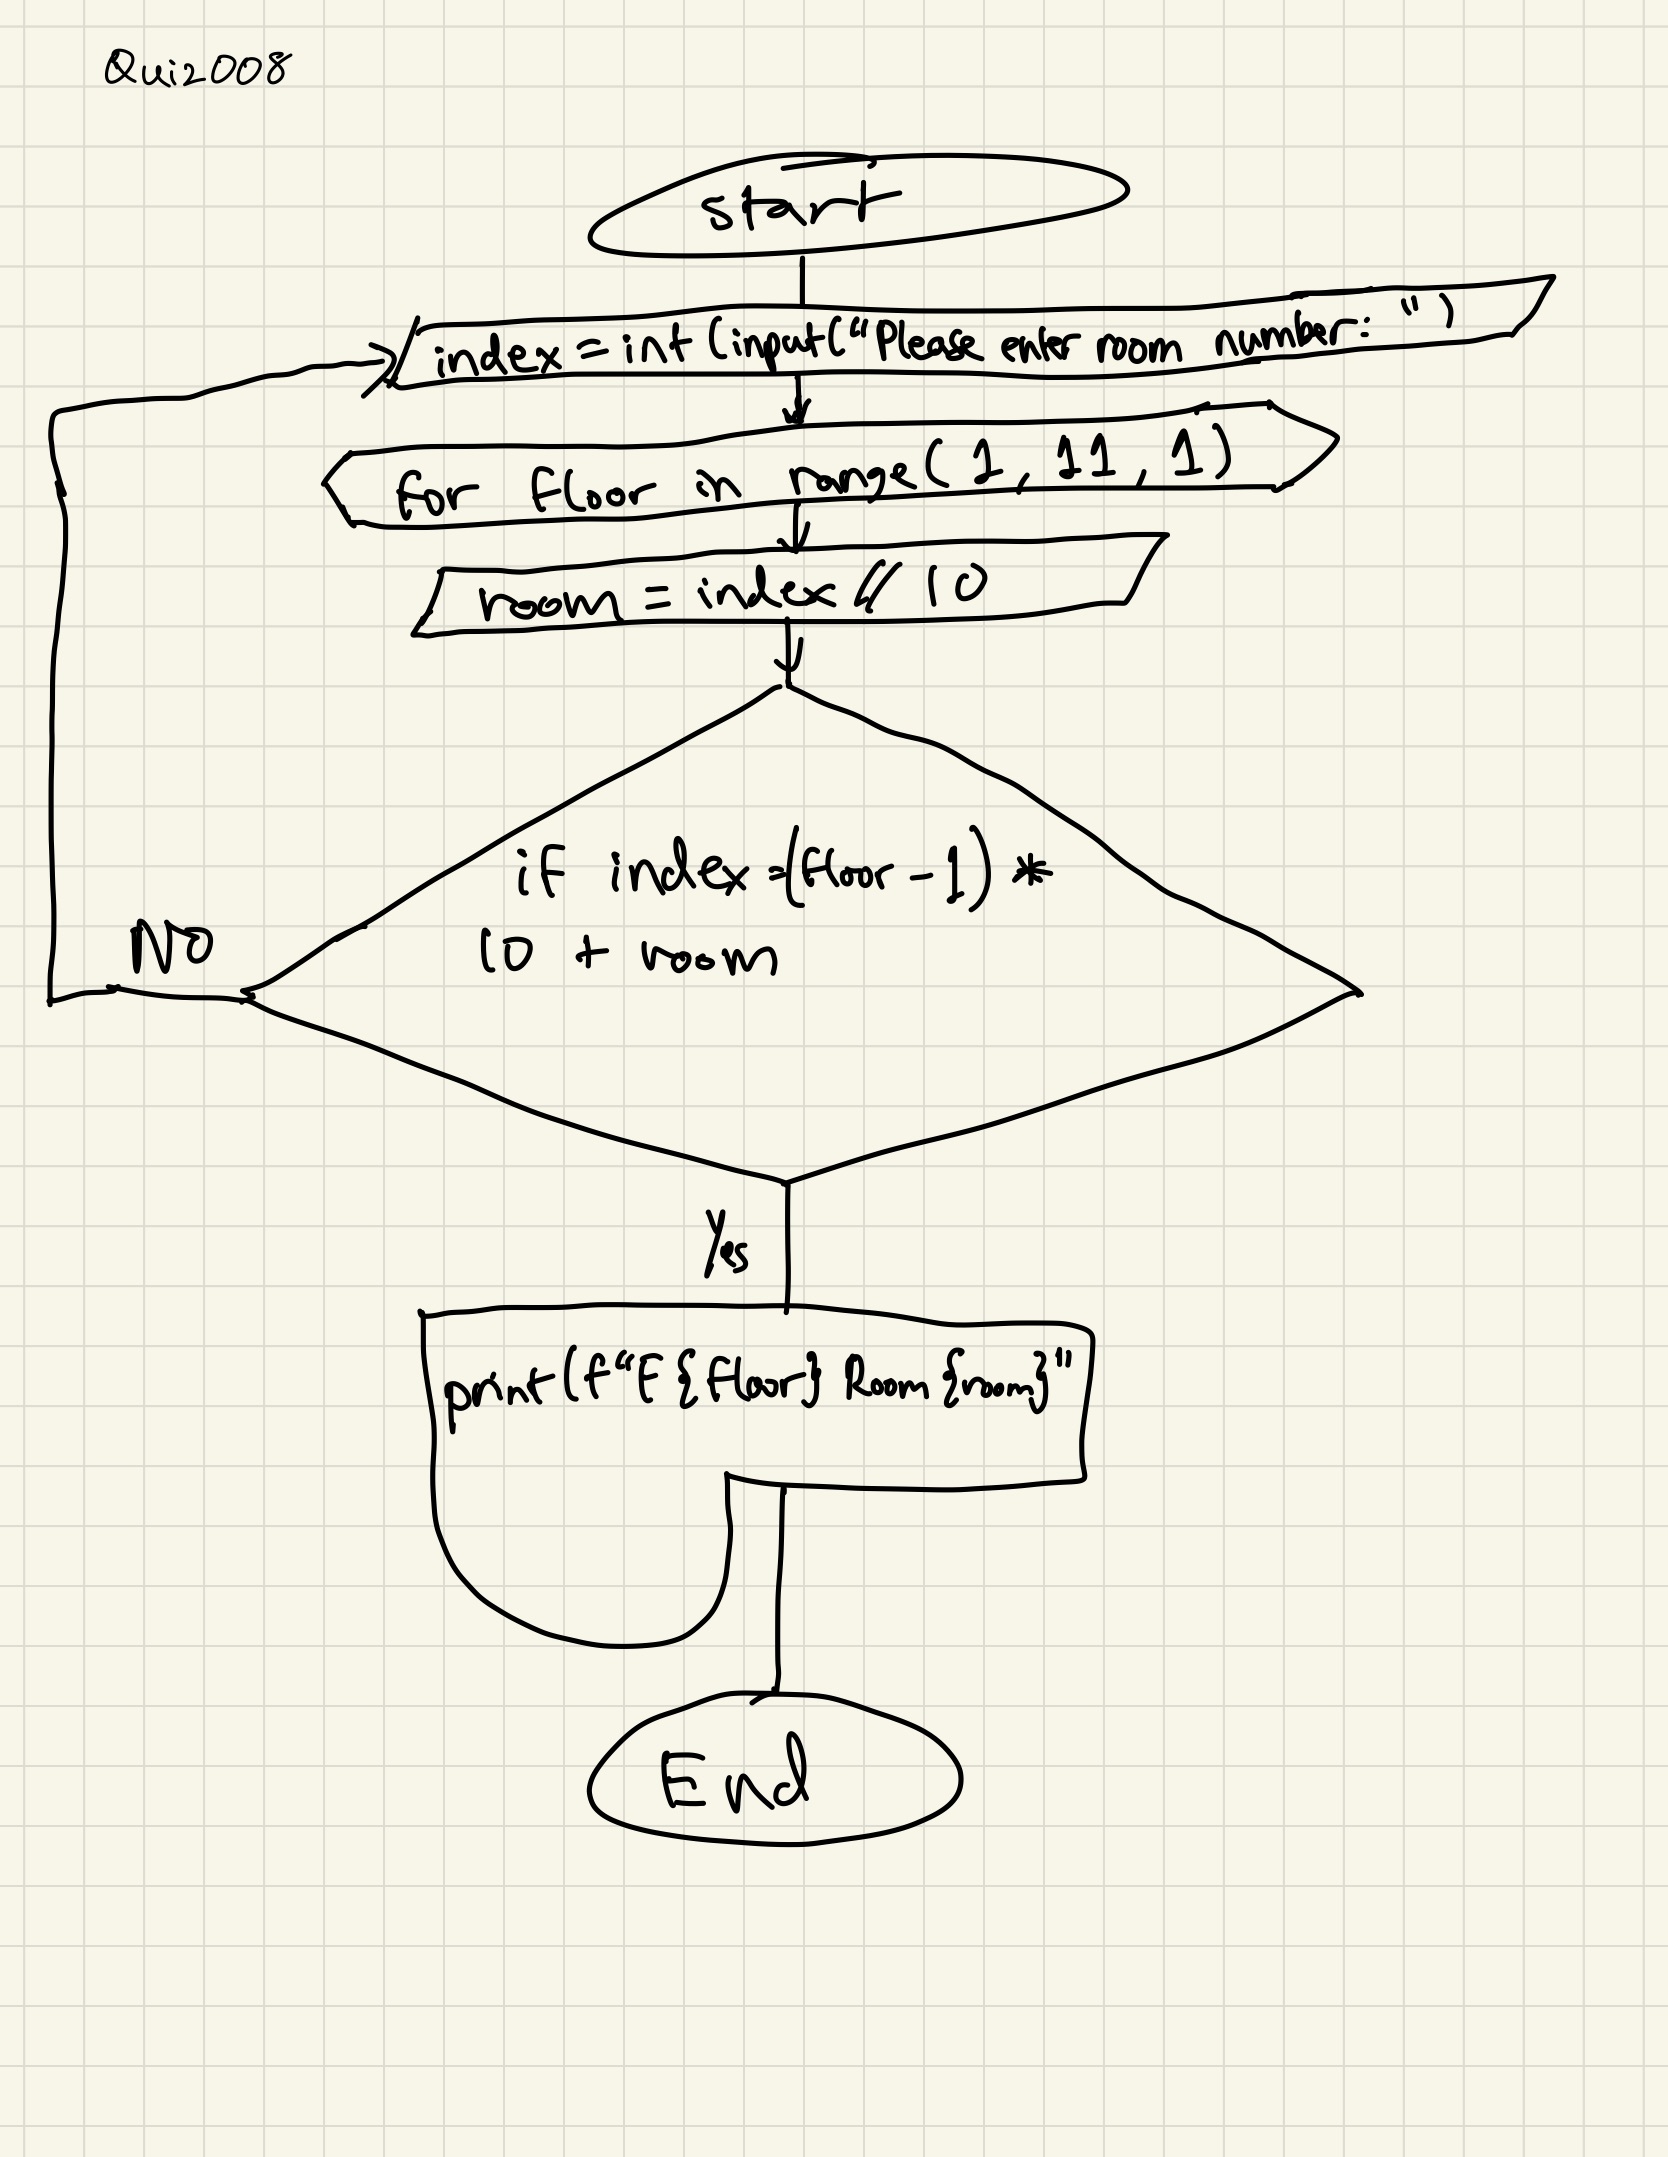 Quiz008
start
index = int (input("Please enter room number: ")
for floor in range(1, 11, 1)
room = index // 10
if index =(floor -1) *
10 + room
NO
Yes
print(f"F{floor} Room {room}"
End